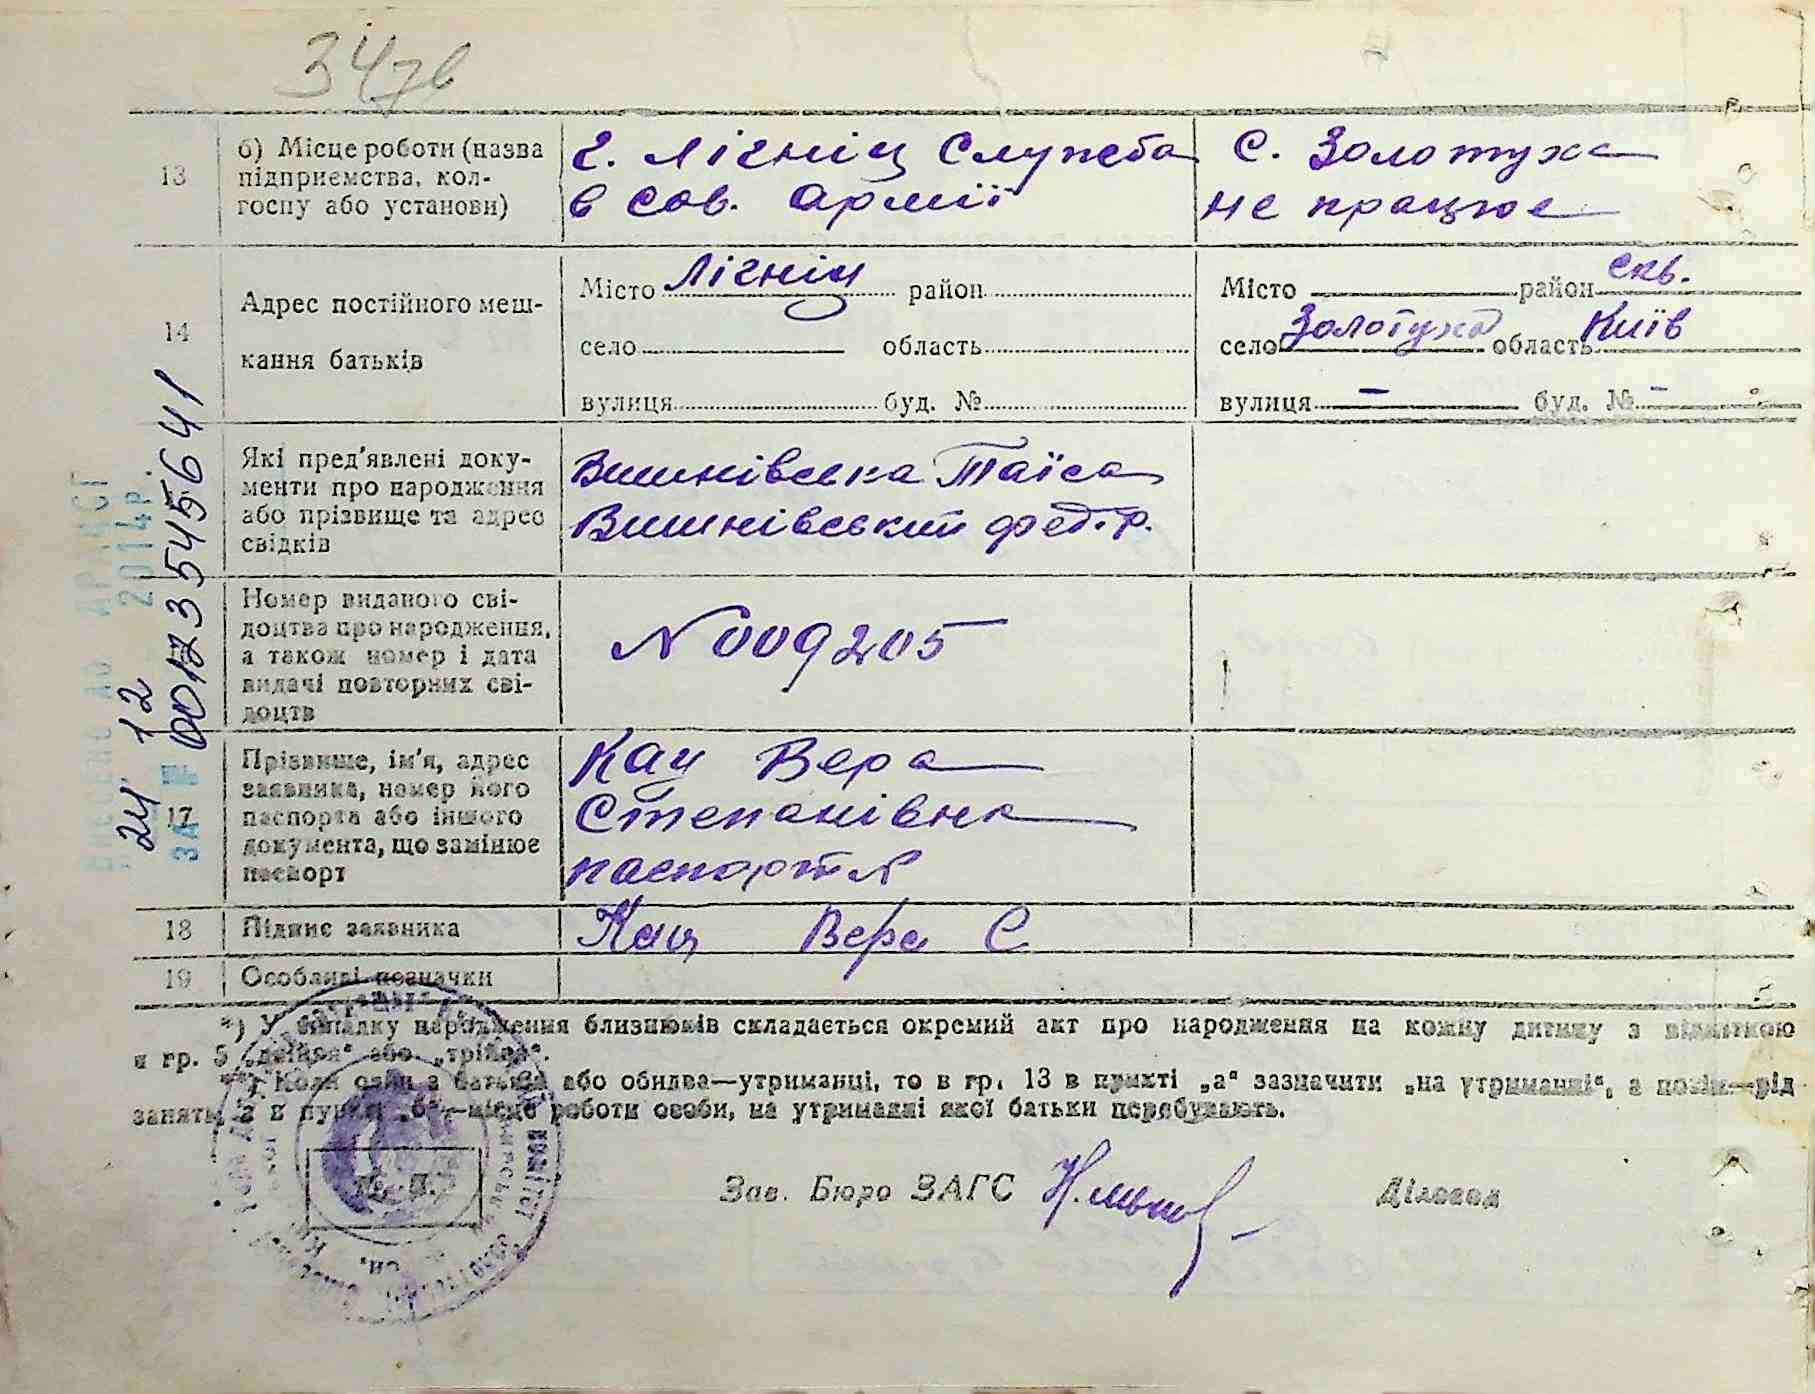 347в
13
б) Місце роботи (назва
підприємства, кол-
госпу або установи)
г. Лігніц Служба
в Сов. Армії
С. Золотуха
не працює
14
Адрес постійного меш-
кання батьків
Місто Лігніц район
село область
вулиця буд. №
Місто район Скв.
село Золотуха область Київ
вулиця — буд. № -
Які пред'явлені доку-
менти про народження
або прізвище та адрес
свідків
Вишнівська Таїса
Вишнівський Фед. Р.
Номер виданого сві-
доцтва про народження,
а також номер і дата
видачі повторних сві-
доцтв
N 009205
17
Прізвище, ім'я, адрес
заявника, номер його
паспорта або іншого
документа, що замінює
паспорт
Кац Вера
Степанівна
паспорт N
18
Підпис заявника
Кац Вера С
19
Особливі позначки
Внесено до ДРАЦСГ
24 12 2014р.
ЗА № 00123545641
*) У випадку народження близнюків складається окремий акт про народження на кожну дитину з відміткою
в гр. 5 „двійня“ або „трійня“.
**) Коли один з батьків або обидва—утриманці, то в гр. 13 в пункті „а“ зазначити „на утриманні“, а потім—рід
занять, а в пункті „б“—місце роботи особи, на утриманні якої батьки перебувають.
М. П.
Зав. Бюро ЗАГС
Діловод